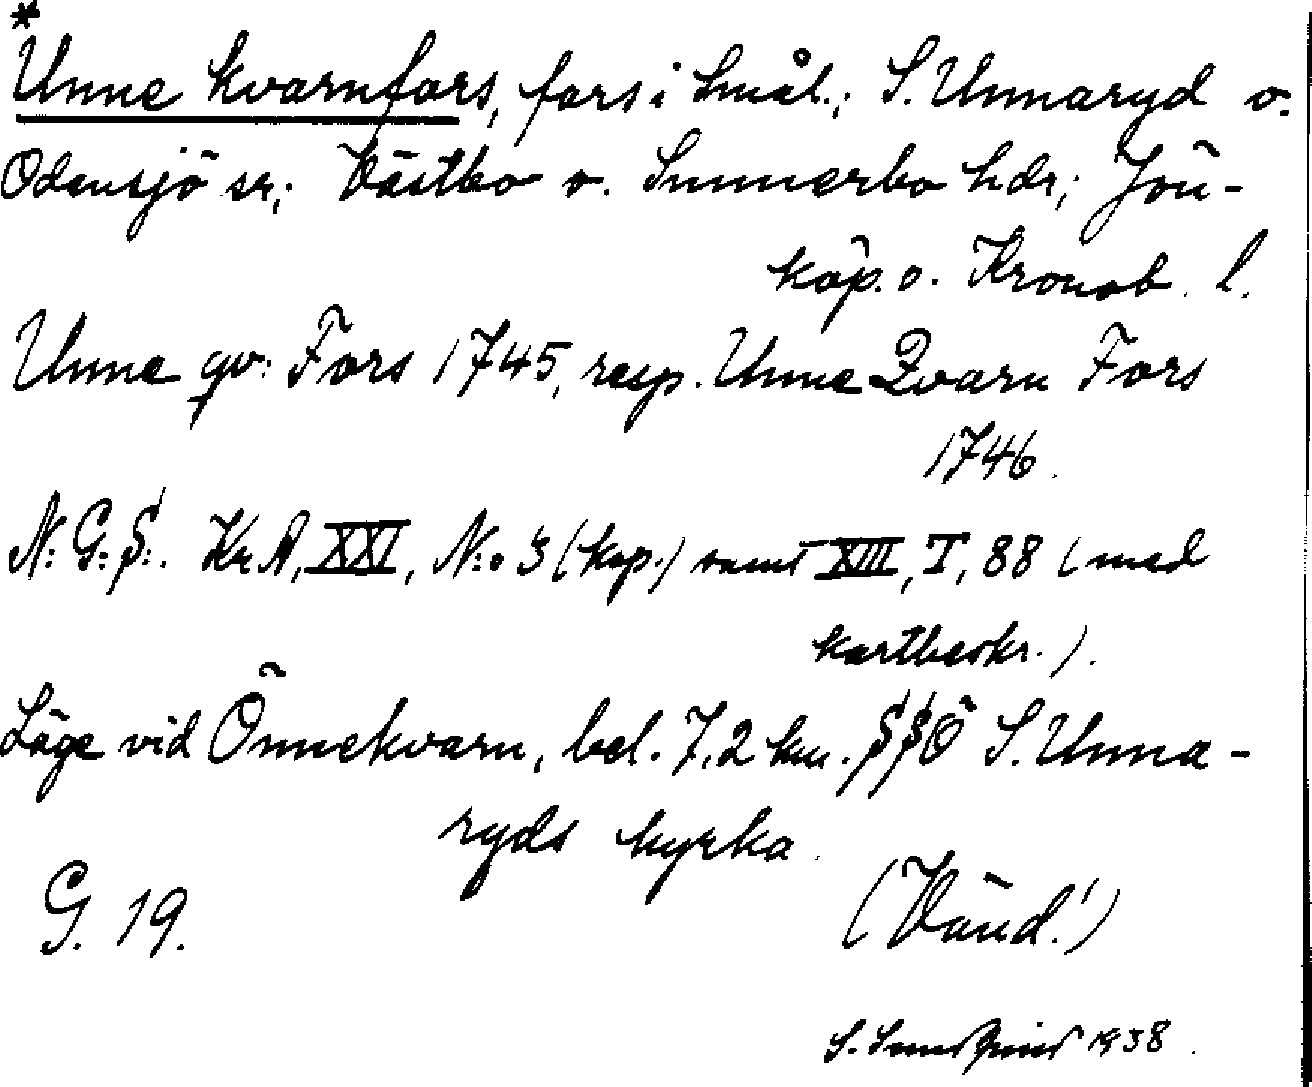 *
Unne kvarnfors, fors i Smål.; S. Unnaryd o.
Odensjö sr; Västbo o. Sunnerbo hdr; Jön-
köp. o. Kronob. l.
Unne qv: Fors 1745, resp. Unne Qvarn Fors
1746.
N:G:S:. Kr.A, XXI, N:o 3 (kop.) samt XIII, I, 88 (med
kartbeskr.).
Läge vid Önnekvarn, bel. 7,2 km. SSÖ S. Unna-
ryds kyrka.
G. 19.
(Vänd!)
S. 1938.